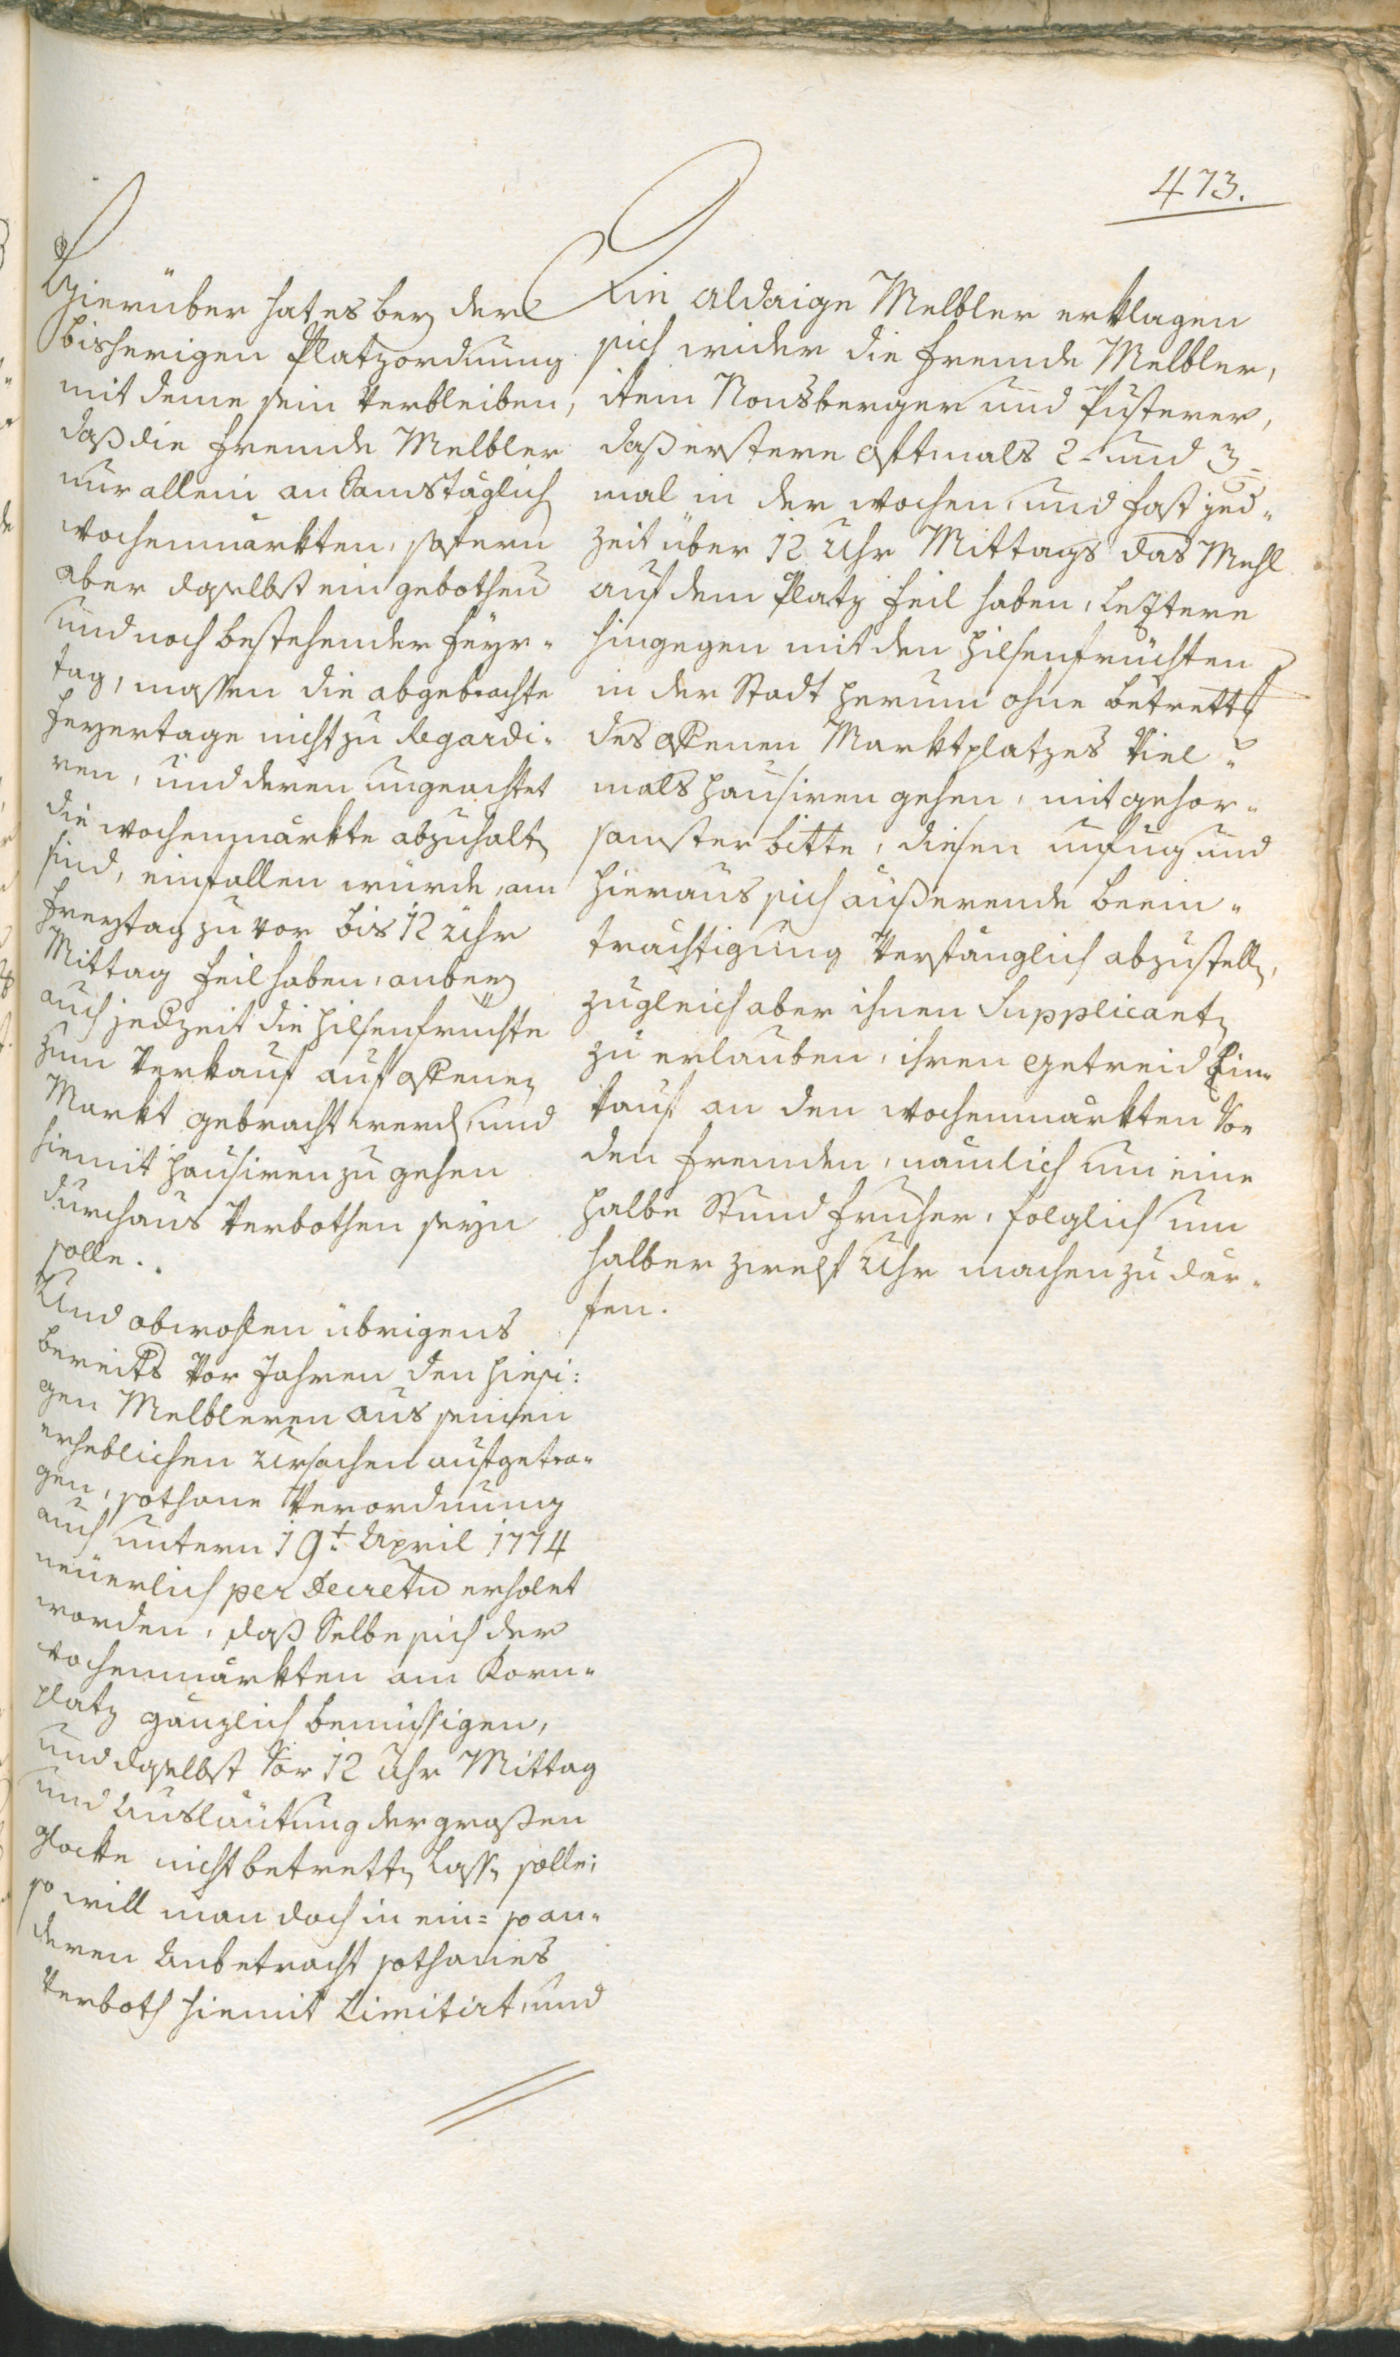 473.
Hierüber hat es bey der
bisherigen Platzordnung
mit deme sein Verbleiben,
daß die fremde Melbler
nur allein an Samstäglich
Wochenmärkten, sofern
aber daselbst ein gebothen
und noch bestehender Feyr-
tag, massen die abgebrachte
Feyertage nicht zu Regardi-
ren, und deren ungeachtet
die Wochenmärkte abzuhalt
sind, einfallen würde, am
Freytag zu vor bis 12 Uhr
Mittag feil haben, anbey
auch jedzeit die Hilsenfrüchte
zum Verkauf auf offenen
Markt gebracht werd, und
hiemit hausiren zu gehen
durchaus Verbothen seyn
solle..
Und obwohlen übrigens
bereits Vor Jahren den hiesi:
gen Melbleren aus seinen
erheblichen Ursachen aufgetra-
gen, sothane Verordnung
auch untern 19t April 1774
neuerlich per Decretu erholet
worden, daß Selbe sich der
Wochenmärkten am Korn-
platz gänzlich bemüssigen,
und daselbst Vor 12 Uhr Mittag
und Ausläütung der großen
Glocke nicht betrett lass solle;
so will man doch in ein= so an-
deren Anbetracht sothanes
Verboth hiemit Limitirt, und
Ein aldaige Melbler erklagen
sich wider die fremde Melbler,
item Nonsberger und Pusterer,
daß erstere oftmals 2- und 3=
mal in der Wochen, und fast jed-
zeit über 12 Uhr Mittags das Mehl
auf dem Platz feil haben, Leztere
hingegen mit den Hilsenfrüchten
in der Stadt herum ohne betrett
des offenen Marktplatzes Viel=
mals hausiren gehen, mit gehor-
samster bitte, diesen unfug und
hieraus sich äußerende beein-
trächtigung Verfänglich abzustell,
zugleich aber ihnen Supplicant
zu erlauben, ihren getreid Ein-
kauf an den Wochenmärkten Vor
den fremden, nämlich um eine
halbe Stund früher, folglich um
halber zwelf Uhr machen zu dör-
fen.